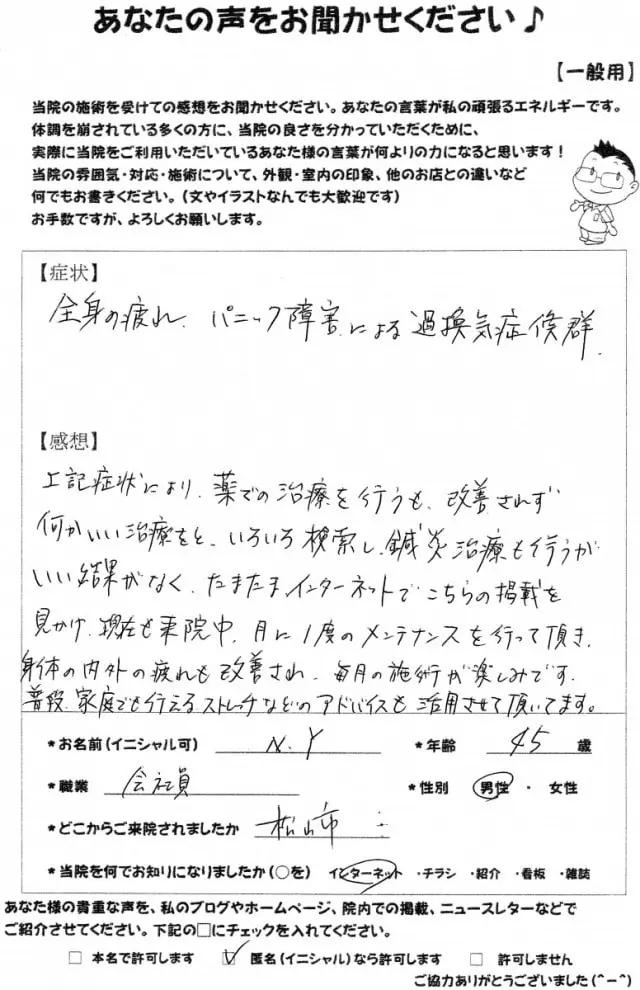 あなたの声をお聞かせください♪
【一般用】
当院の施術を受けての感想をお聞かせください。あなたの言葉が私の頑張るエネルギーです。
体調を崩されている多くの方に、当院の良さを分かっていただくために、
実際に当院をご利用いただいているあなた様の言葉が何よりの力になると思います!
当院の雰囲気・対応・施術について、外観・室内の印象、他のお店との違いなど
何でもお書きください。(文やイラストなんでも大歓迎です)
お手数ですが、よろしくお願いします。
【症状】
全身の疲れ、パニック障害による過換気症候群、
【感想】
上記症状により、薬での治療を行うも、改善されず
何かいい治療をと、いろいろ検索し、鍼灸治療も行うが
いい結果がなく、たまたまインターネットでこちらの掲載を
見かけ、現在も来院中、月に1度のメンテナンスを行って頂き、
身体の内外の疲れも改善され、毎月の施術が楽しみです。
普段、家庭でも行えるストレッチなどのアドバイスも活用させて頂いてます。
*お名前(イニシャル可) N.Y *年齢 45 歳
*職業 会社員 *性別 男性 ・ 女性
*どこからご来院されましたか 松山市
*当院を何でお知りになりましたか(○を) インターネット ・チラシ ・紹介 ・看板 ・雑誌
あなた様の貴重な声を、私のブログやホームページ、院内での掲載、ニュースレターなどで
ご紹介させてください。下記の□にチェックを入れてください。
□ 本名で許可します ☑ 匿名(イニシャル)なら許可します □ 許可しません
ご協力ありがとうございました(^-^)